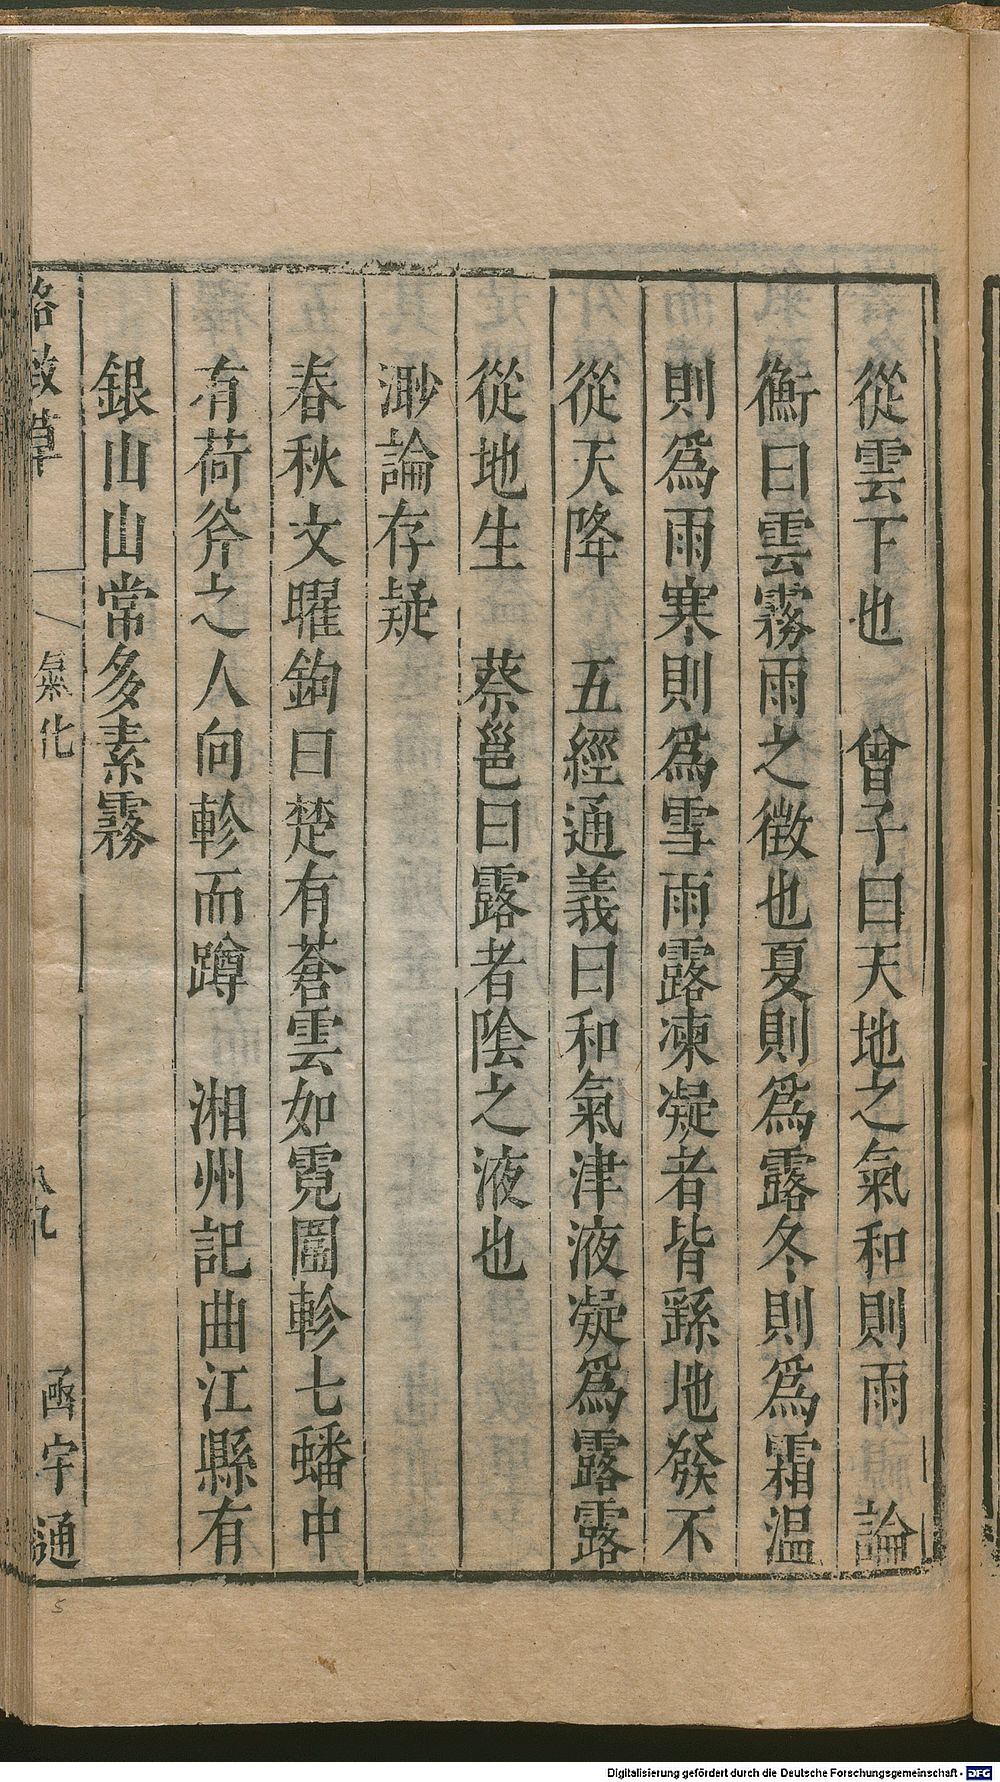 從雲下也　曾子曰天地之氣和則雨　論
衡曰雲霧雨之徴也夏則爲露冬則爲霜温
則爲雨寒則爲雪雨露凍凝者皆繇地發不
從天降　五經通義曰和氣津液凝爲露露
從地生　蔡邕曰露者陰之液也
渺論存疑
春秋文曜鉤曰楚有蒼雲如霓圍軫七蟠中
有荷斧之人向軫而蹲　湘州記曲江縣有
銀山山常多素霧
格致草　氣化　函宇通
5
Digitalisierung gefördert durch die Deutsche Forschungsgemeinschaft - DFG